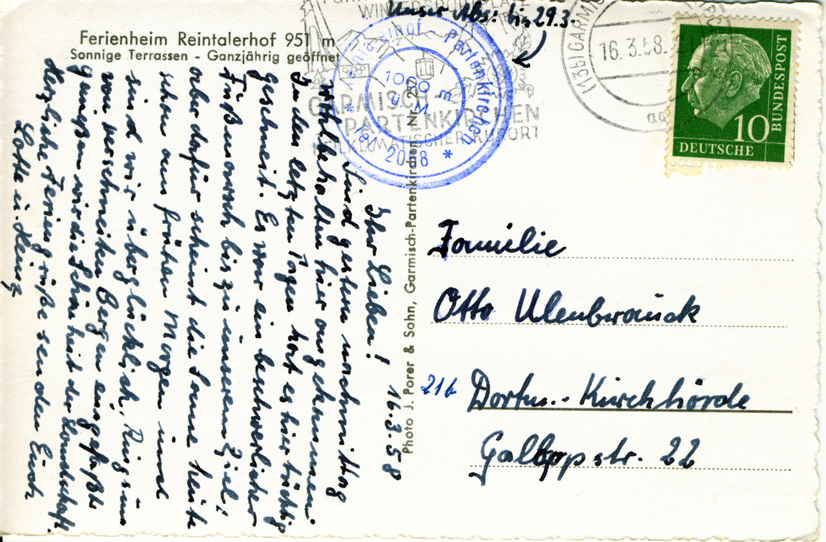 Ferienheim Reintalerhof 951 m
Sonnige Terrassen - Ganzjährig geöffnet
Unser Abs: bis 29.3.
Partenkirchen
1000 m
ü. M.
Tel 2058 *
GARMISCH
PARTENKIRCHEN
HEILKLIMATISCHER KURORT
(13b) GARMISCH
16.3.58
DEUTSCHE
BUNDESPOST
10
Photo J. Porer & Sohn, Garmisch-Partenkirchen, Nr. 252
16.3.58
Ihr Lieben!
Sind gestern nachmittag
wohlbehalten hier angekommen.
In den letzten Tagen hat es hier tüchtig
geschneit. Es war ein beschwerlicher
Fußmarsch bis zu unserem Ziel,
aber dafür scheint die Sonne heute
schon am frühen Morgen und
sind wir überglücklich. Rings
von verschneiten Bergen eingefaßt
genießen wir die Schönheit der Landschaft.
Herzliche Feriengrüße senden Euch
Lotte u. Heinz
Familie
Otto Ulenbrauck
21b Dortm.- Kirchhörde
Galoppstr. 22